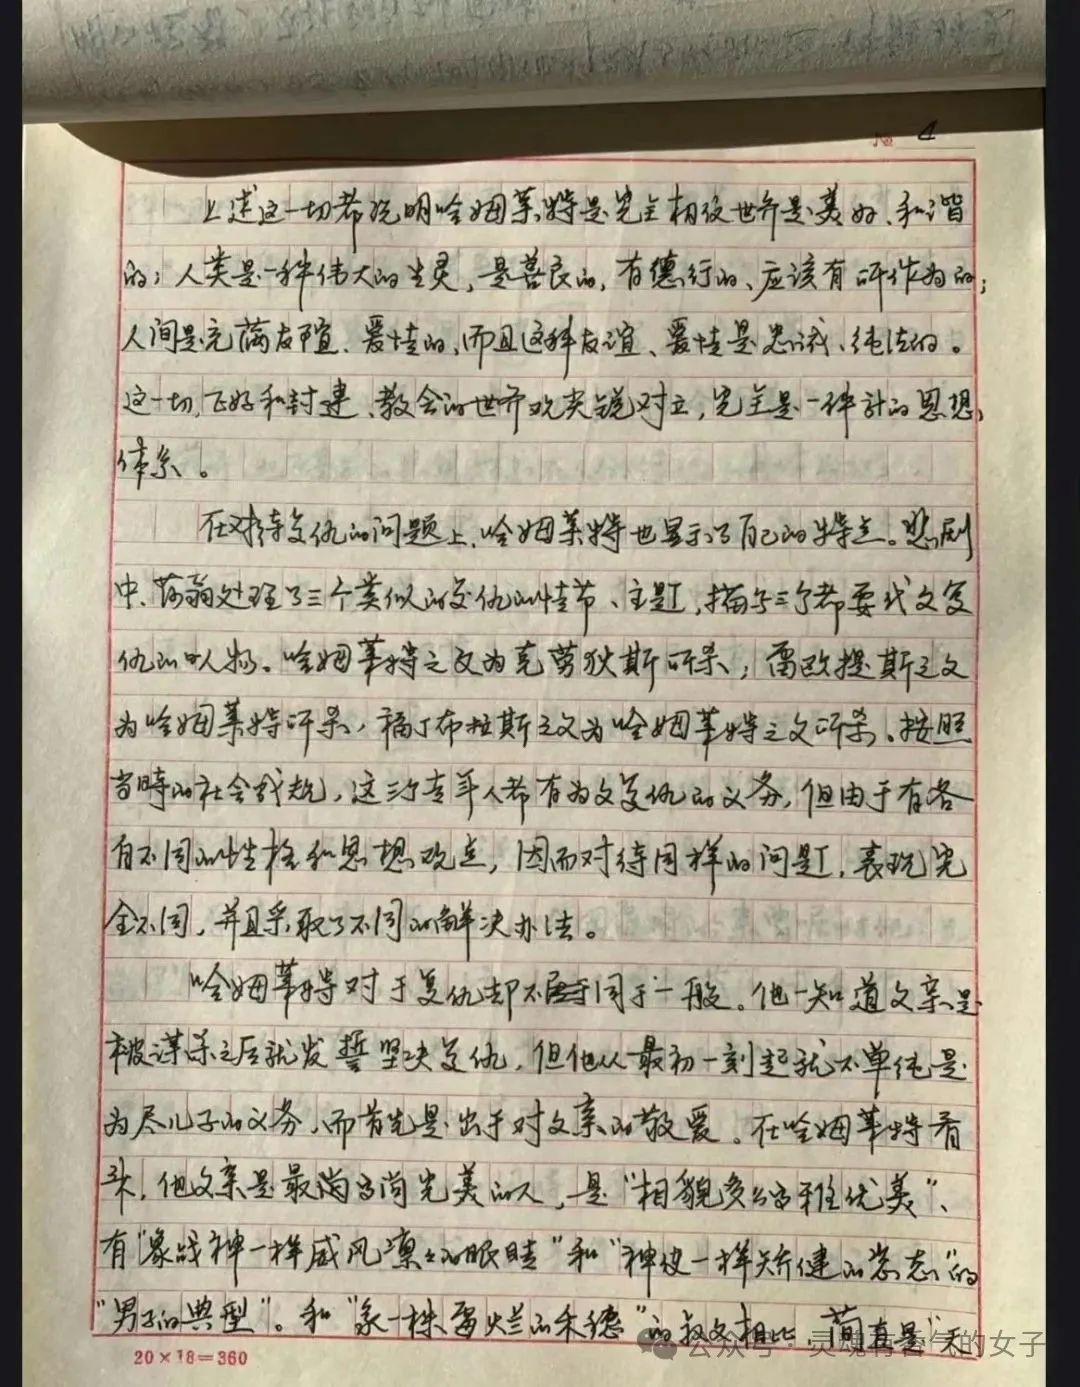 № 4
上述这一切都说明哈姆莱特是完全相信世界是美好、和谐
的；人类是一种伟大的生灵，是善良的，有德行的、应该有所作为的；
人间是充满友谊、爱情的、而且这种友谊、爱情是忠诚、纯洁的。
这一切，正好和封建、教会的世界观尖锐对立，完全是一种新的思想
体系。
在对待复仇的问题上，哈姆莱特也显示了自己的特点。悲剧
中、莎翁处理了三个类似的复仇的情节、主题，描写三个都要代父复
仇的人物。哈姆莱特之父为克劳狄斯所杀；雷欧提斯之父
为哈姆莱特所杀，福丁布拉斯之父为哈姆莱特之父所杀。按照
当时的社会战规，这三个青年人都有为父复仇的义务，但由于有各
自不同的性格和思想观点，因而对待同样的问题，表现完
全不同，并且采取了不同的解决办法。
哈姆莱特对于复仇却不同于一般。他一知道父亲是
被谋杀之后就发誓坚决复仇，但他从最初一刻起就不单纯是
为尽儿子的义务、而首先是出于对父亲的敬爱。在哈姆莱特看
来，他父亲是最高尚完美的人，是“相貌多么高雅优美”、
有“象战神一样威风凛凛的眼睛”和“神使一样矫健的姿态”的
“男子的典型”。和“象一株霉烂的禾穗”的叔父相比，简直是“天
20×18=360
公众号·灵魂有香气的女子